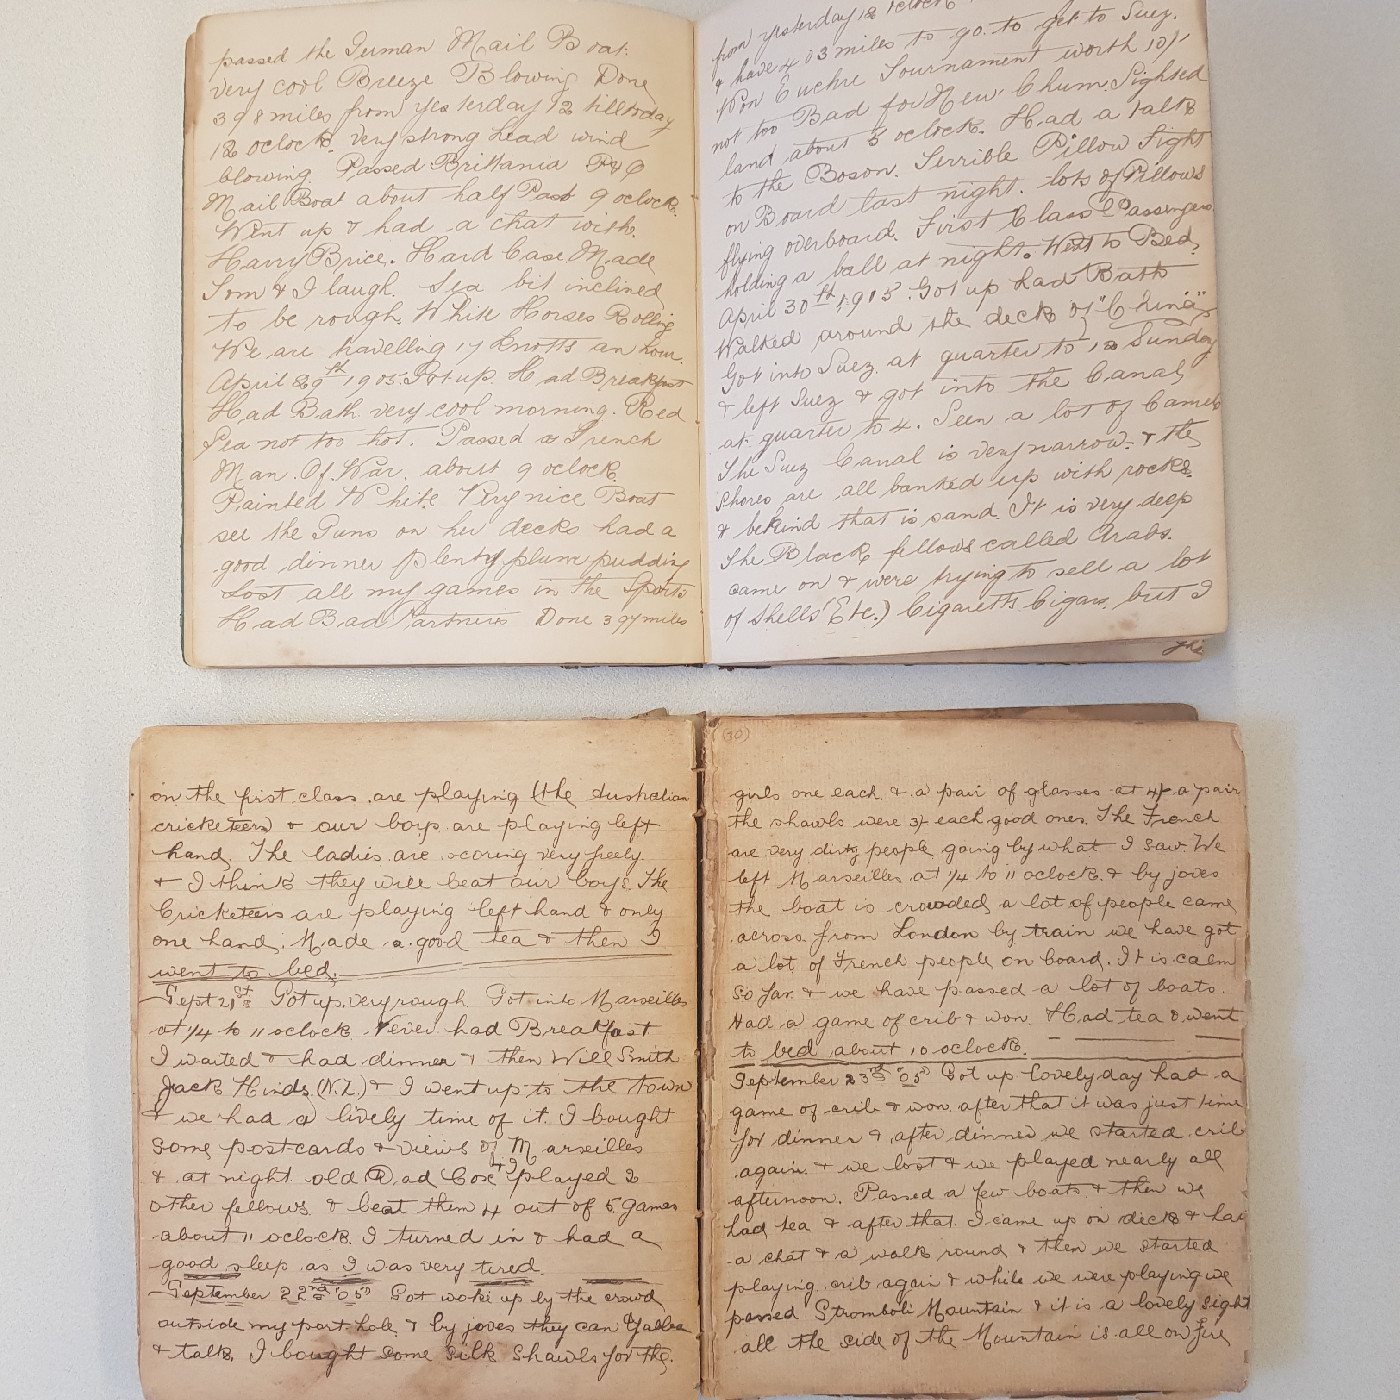 passed the German Mail Boat.
very cool Breeze Blowing Done
398 miles from yesterday 12 till today
12 oclock. very strong head wind
blowing. Passed Brittania P & O
Mail Boat about half Past 9 oclock.
Went up & had a chat with.
Harry Brice. Hard Case Made
Tom & I laugh. Sea bit inclined
to be rough. White Horses Rolling
We are travelling 17 Knotts an hour.
April 29th 1905. Got up. Had Breakfast
Had Bath. very cool morning. Red
Sea not too hot. Passed a French
Man. Of. War. about 9 oclock.
Painted White. Very nice Boat
see the Guns on her decks had a
good dinner plenty plum pudding
Lost all my games in the Sports
Had Bad Partners Done 397 miles
from yesterday 12 oclock
& have 403 miles to go. to get to Suez.
Won Euchre Tournament worth 10/-
not too Bad for New. Chum. Sighted
land about 3 oclock. Had a talk
to the Boson. Terrible Pillow Fight
on Board last night. lots of Pillows
flying overboard. First Class Passengers
holding a ball at night. Went to Bed.
April 30th 1905. Got up had Bath
Walked around the deck of "China"
Got into Suez. at quarter to 12 Sunday
& left Suez & got into the Canal
at quarter to 4. Seen a lot of Camels
The Suez Canal is very narrow. & the
shores are all banked up with rocks
& behind that is sand. It is very deep
The Black fellows called Arabs.
came on & were trying to sell a lot
of Shells (Etc.) Cigaretts Cigars, but I
on the first class are playing (the Australian
cricketeers & our boys are playing left
hand. The ladies are scoring very freely
& I think they will beat our boys. The
Cricketeers are playing left hand & only
one hand. Made a good tea & then I
went to bed.
Sept 21st Got up. very rough Got into Marseilles
at 1/4 to 11 oclock. Never had Breakfast
I waited & had dinner & then Will Smith
Jack Hinds. (N.Z.) & I went up to the town
& we had a lively time of it. I bought
some postcards & views of Marseilles
& at night old Dad Cox & I played 2
other fellows & beat them 4 out of 5 games
about 11 oclock. I turned in & had a
good sleep as I was very tired.
September 22nd 05 Got woke up by the crowd
outside my port hole & by joves they can Yabber
& talk. I bought some silk shawls for the.
(30)
girls one each & a pair of glasses at 4/- a pair
the shawls were 3/- each good ones. The French
are very dirty people going by what I saw. We
left Marseilles at 1/4 to 11 oclock. & by joves
the boat is crowded, a lot of people came
across from London by train we have got
a lot of French people on board. It is calm
so far. & we have passed a lot of boats.
Had a game of crib & won. Had tea & went
to bed about 10 oclock.
September 23rd 05 Got up lovely day had a
game of crib & won after that it was just time
for dinner & after dinner we started crib
again. & we lost & we played nearly all
afternoon. Passed a few boats & then we
had tea & after that I came up on deck & had
a chat & a walk round & then we started
playing crib again & while we were playing we
passed Stromboli Mountain & it is a lovely sight
all the side of the Mountain is all on fire